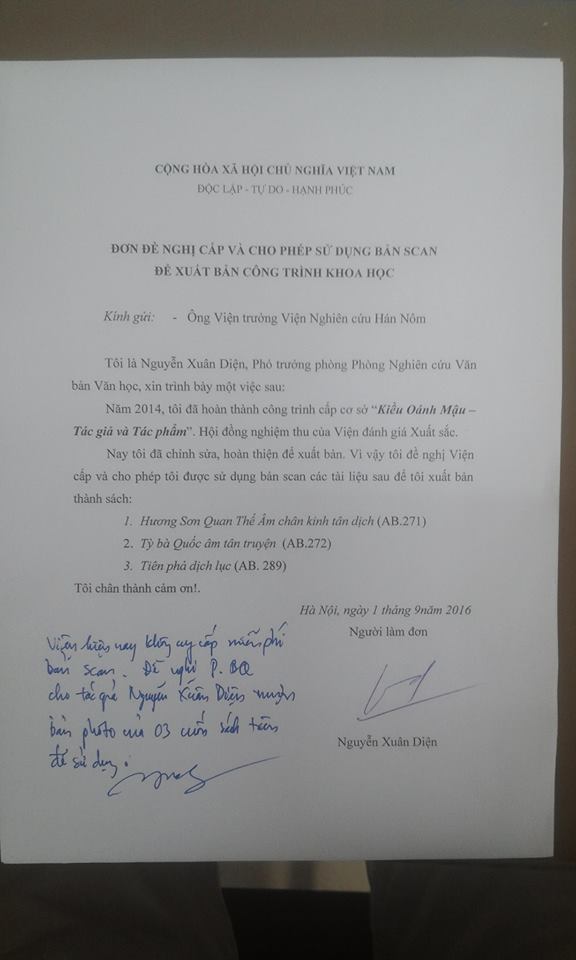 CỘNG HÒA XÃ HỘI CHỦ NGHĨA VIỆT NAM
ĐỘC LẬP - TỰ DO - HẠNH PHÚC
ĐƠN ĐỀ NGHỊ CẤP VÀ CHO PHÉP SỬ DỤNG BẢN SCAN
ĐỂ XUẤT BẢN CÔNG TRÌNH KHOA HỌC
Kính gửi: - Ông Viện trưởng Viện Nghiên cứu Hán Nôm
Tôi là Nguyễn Xuân Diện, Phó trưởng phòng Phòng Nghiên cứu Văn
bản Văn học, xin trình bày một việc sau:
Năm 2014, tôi đã hoàn thành công trình cấp cơ sở “Kiều Oánh Mậu –
Tác giả và Tác phẩm”. Hội đồng nghiệm thu của Viện đánh giá Xuất sắc.
Nay tôi đã chỉnh sửa, hoàn thiện để xuất bản. Vì vậy tôi đề nghị Viện
cấp và cho phép tôi được sử dụng bản scan các tài liệu sau để tôi xuất bản
thành sách:
1. Hương Sơn Quan Thế Âm chân kinh tân dịch (AB.271)
2. Tỳ bà Quốc âm tân truyện (AB.272)
3. Tiên phả dịch lục (AB. 289)
Tôi chân thành cảm ơn!.
Hà Nội, ngày 1 tháng 9năm 2016
Người làm đơn
Viện hiện nay không cung cấp miễn phí
bản scan. Đề nghị P. BQ
cho tác giả Nguyễn Xuân Diện mượn
bản photo của 03 cuốn sách trên
để sử dụng.
Nguyễn Xuân Diện